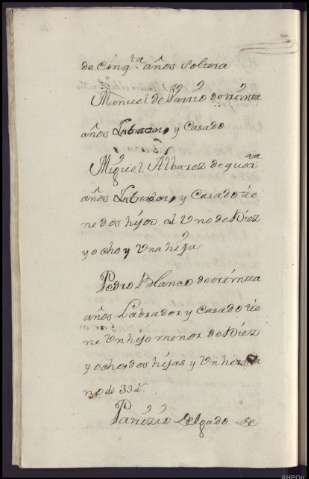 de Cinq.ta años soltera
Manuel de Varrio de treinta
años Labrador, y Casado
Miguel Albarez de quar.ta
años Labrador, y Casado tie
ne dos hijos el Uno de Diez
y ocho y Una hija
Pedro Blanco de treinta
años Labrador y Casado tie
ne Un hijo menor de Diez
y ocho dos hijas y Un herma
no de 33 a.s
Patrizio Delgado de